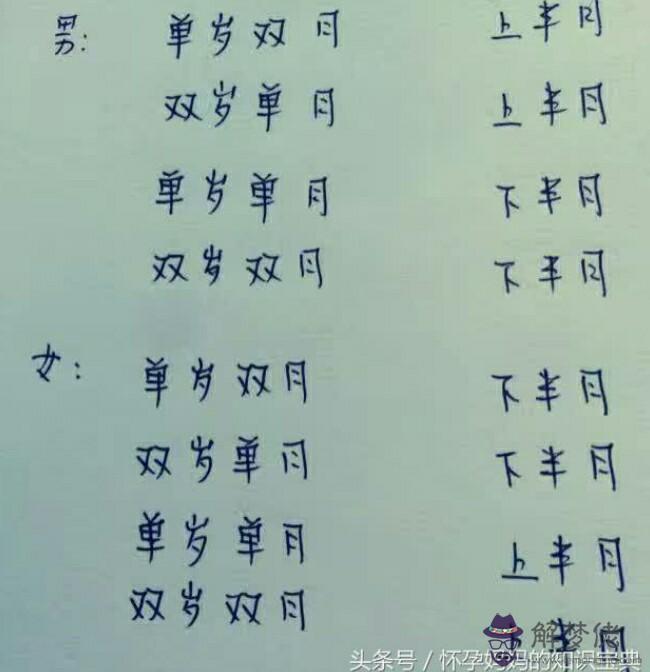 男： 单岁双月 上半月
双岁单月 上半月
单岁单月 下半月
双岁双月 下半月
女： 单岁双月 下半月
双岁单月 下半月
单岁单月 上半月
双岁双月 半月
解梦佬
头条号 / 怀孕妈妈的知识宝典